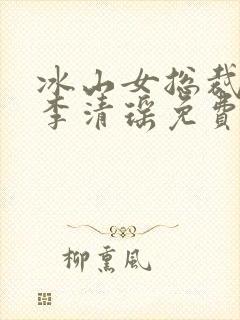 冰山女总裁
李清瑶免费
柳熏风